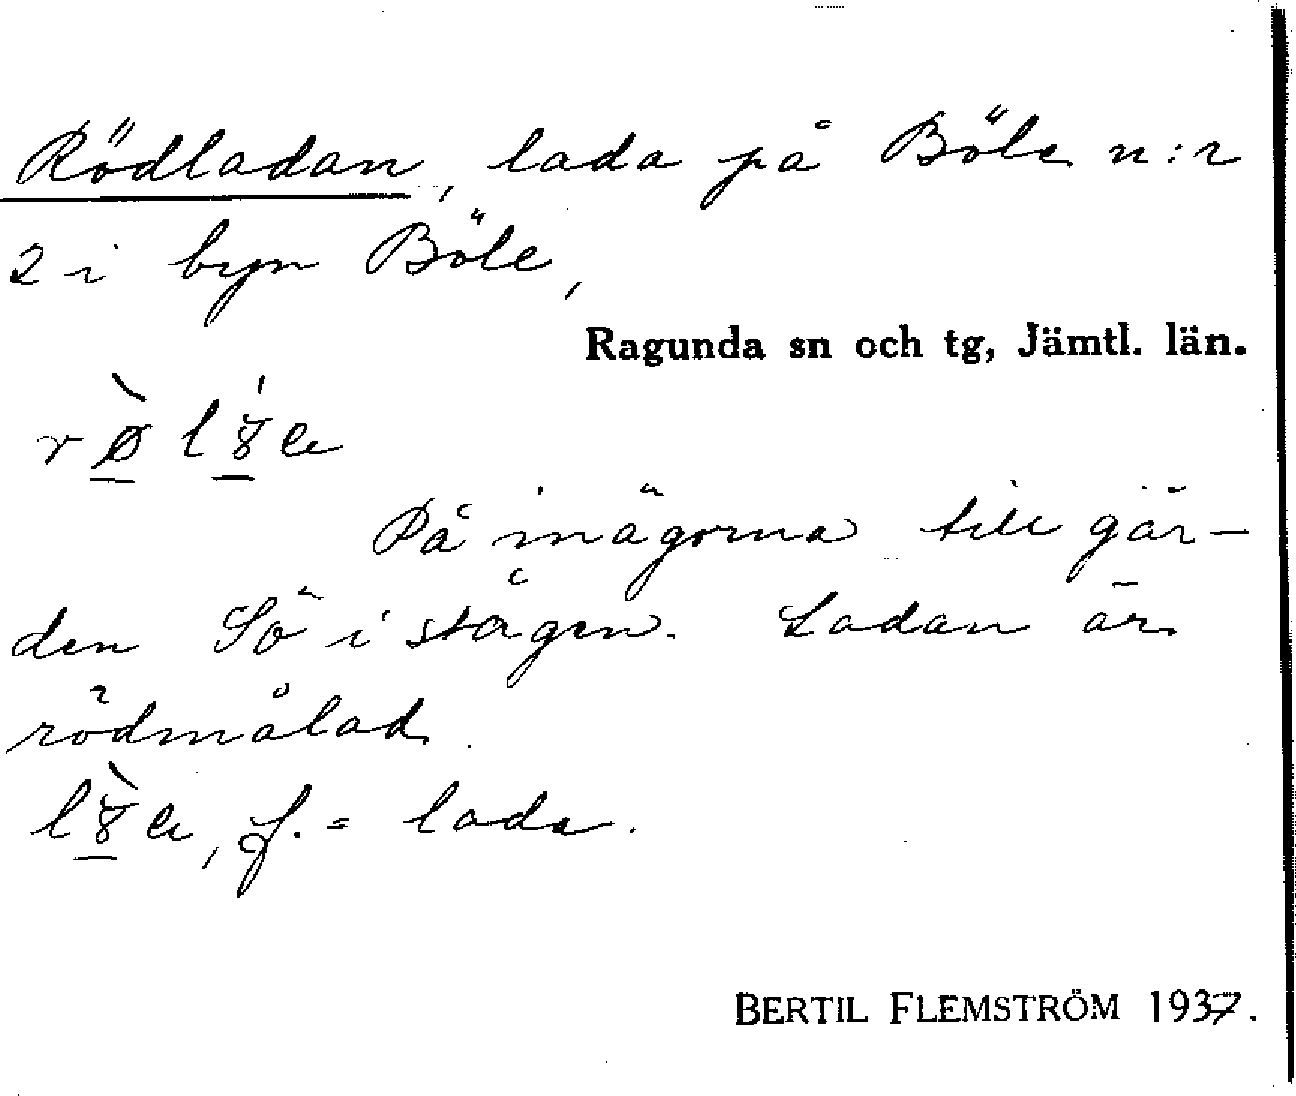 Rödladan, lada på Böle n:r
2 i byn Böle,
Ragunda sn och tg, Jämtl. län.
På inägorna till går-
den Sö i stägen. Ladan är
rödmålad.
f. = lada.
BERTIL FLEMSTRÖM 1937.